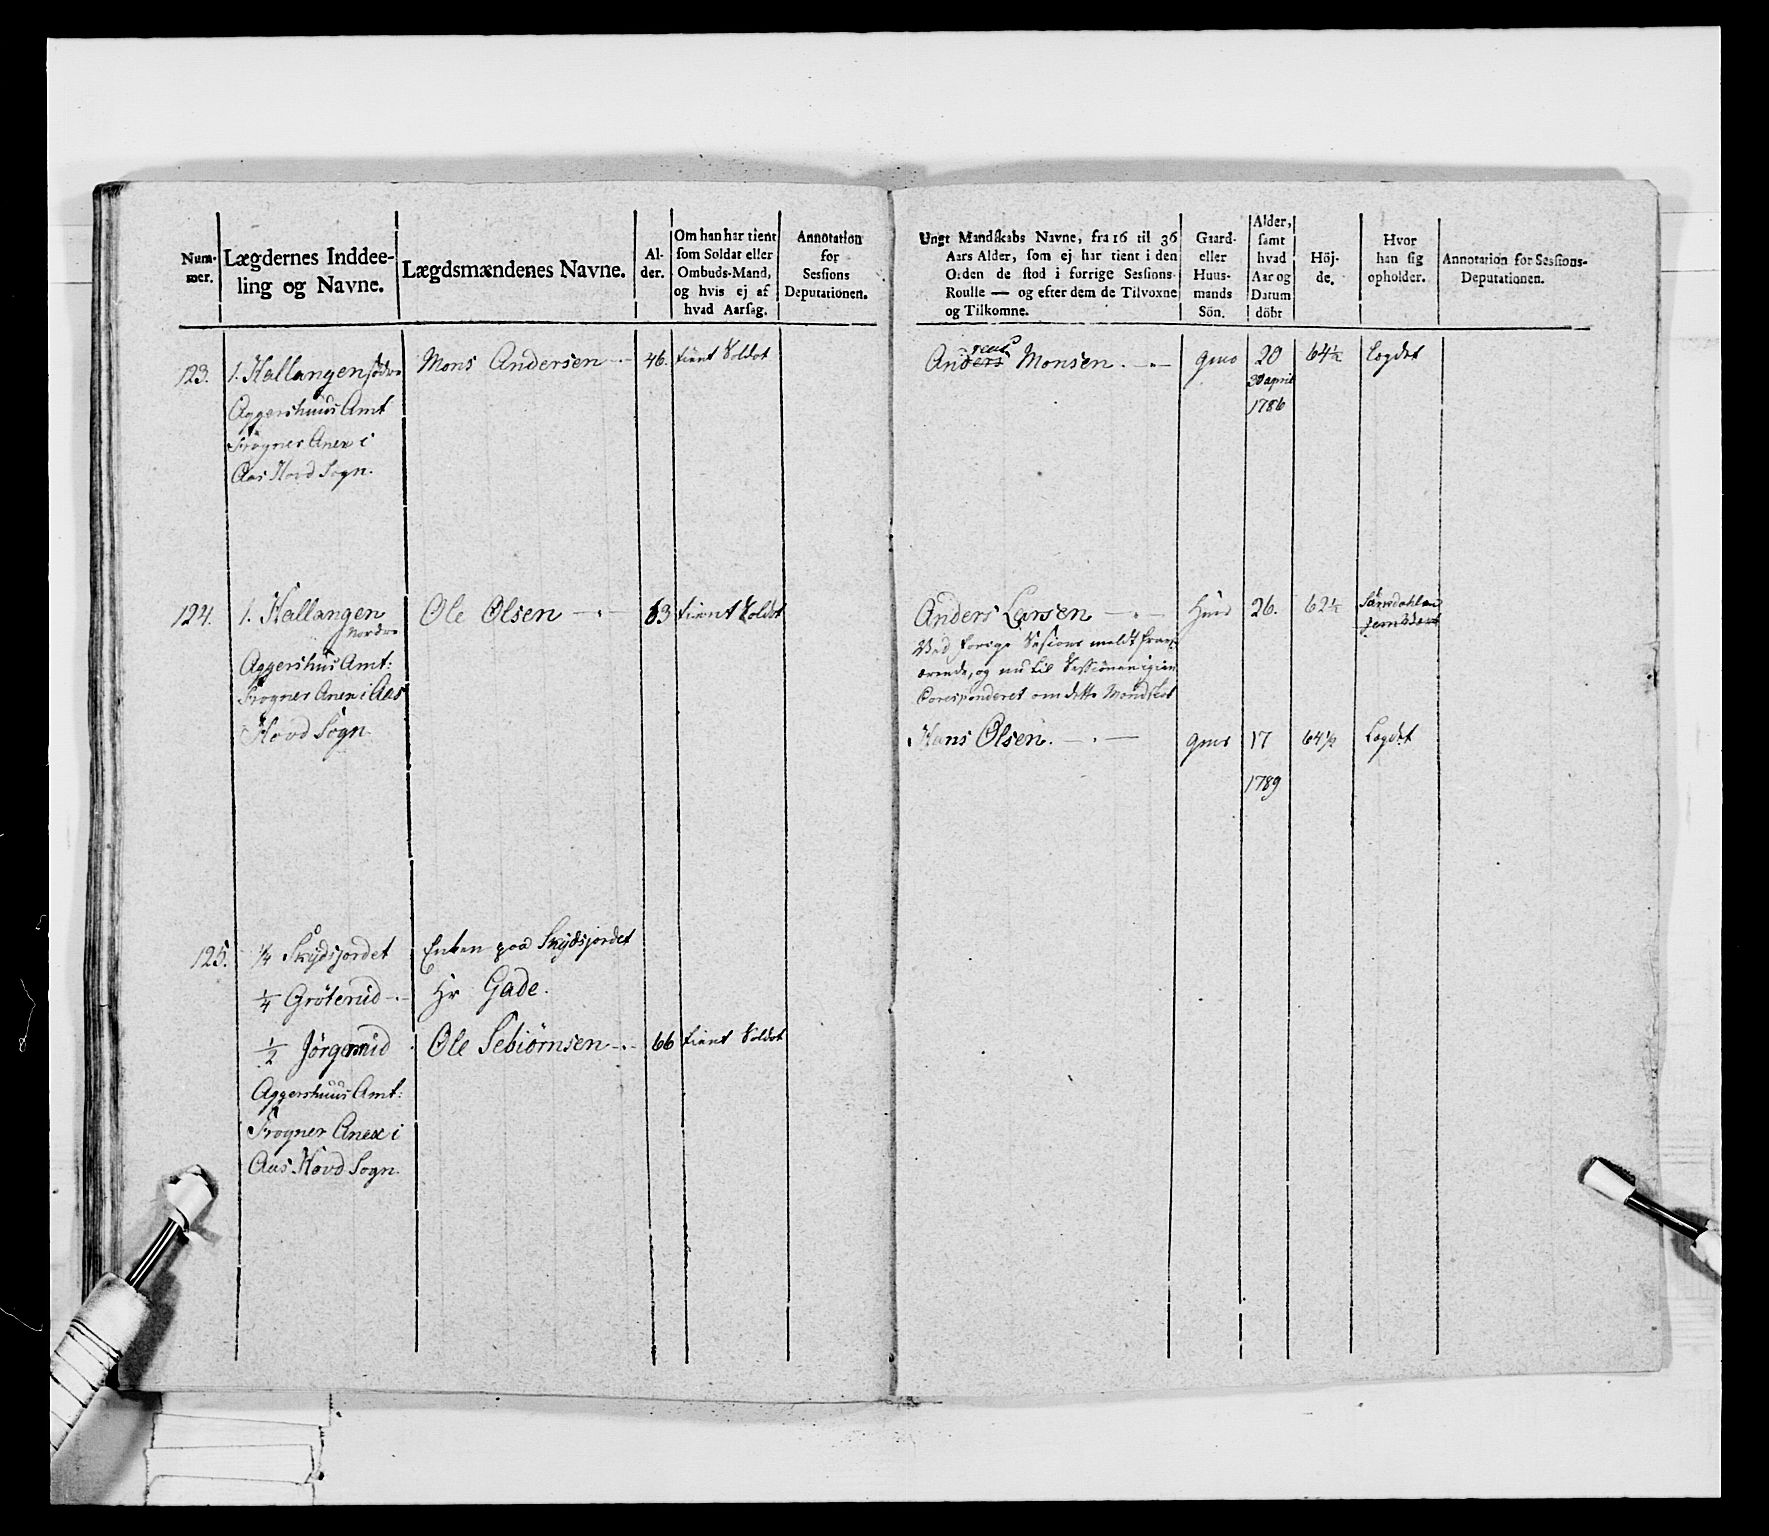 Num-
mer.
Lægdernes Inddee-
ling og Navne.
Lægdsmændenes Navne.
Al-
der.
Om han har tient
som Soldat eller
Ombuds-Mand,
og hvis ej af
hvad Aarsag.
Annotation
for
Sessions
Deputationen.
123.
1. Hallangen sødre
Aggershuus Amt
Frogner Anex i
Aas Hovd Sogn.
Mons Andersen
46.
tient Soldat
124.
1. Hallangen
Nordre
Aggershus Amt:
Frogner Anex i Aas
Hovd Sogn
Ole Olsen
63
tient Soldat
125.
1/4 Skydsjordet
Enken paa Skydsjordet
1/4 Gröterud
Hr Gade.
1/2 Jörgerud
Ole Sebiörnsen
66
tient Soldat
Aggershuus Amt:
Frogner Anex i
Aas Hovd Sogn.
Ungt Mandskabs Navne, fra 16 til 36
Aars Alder, som ej har tient i den
Orden de stod i forrige Sessions-
Roulle — og efter dem de Tilvoxne
og Tilkomne.
Gaard-
eller
Huus-
mands
Sön.
Alder,
samt
hvad
Aar og
Datum
döbt
Höj-
de.
Hvor
han sig
opholder.
Annotation for Sessions-
Deputationen.
Anders Monsen
gms
20
30 april
1786
64 1/2
Lægdet
Anders Larsen
Hms
26.
62 1/2
Ved forige Sesions meldt fra
ærende, og nu til Sessionen igien
Coresponderet om dette Mandskab
Hans Olsen
gms
17
1789
64 1/2
Lægdet